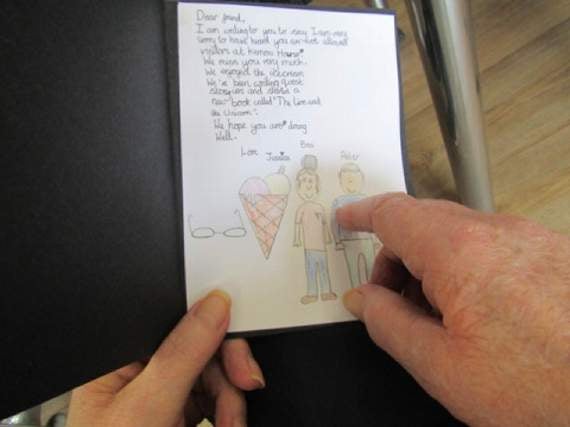 Dear friend,
I am writing to you to say I am very
sorry to have heard you are not allowed
visitors at House
We miss you very much.
We enjoyed the icecream
We've been writing
stories and started a
new book called "The Lion and
the Unicorn".
We hope you are doing
well.
Love Jessica Ben Peter